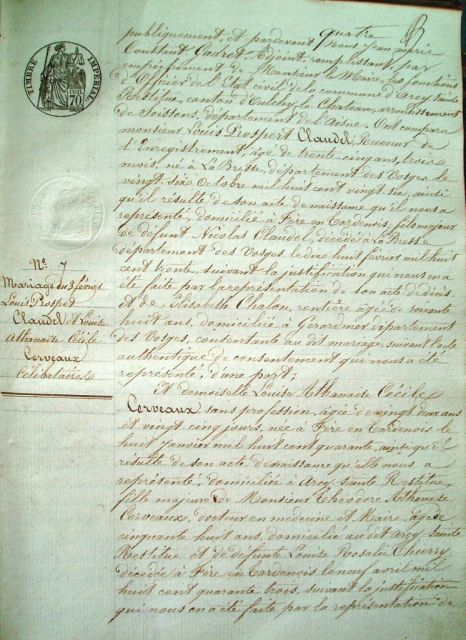 quatre
publiquement, et pardevant Nous Jean
Constant Cadret, Adjoint, remplissant, par
empêchement de Monsieur le Maire, les fonctions
d'Officier de l'Etat civil de la commune d'Arcy Sainte
Restitue, canton d'Oulchy le Château, arrondissement
de Soissons, département de l'Aisne. Ont comparu
monsieur Louis Prosper Claudel, Receveur de
l'Enregistrement, âgé de trente cinq ans, trois
mois, né à La Bresse, département des Vosges le
vingt six Octobre mil huit cent vingt six, ainsi
qu'il résulte de son acte de naissance qu'il nous a
représenté, domicilié à Fère en Tardenois, fils majeur
de défunt Nicolas Claudel, décédé à La Bresse
département des Vosges le dix huit février mil huit
cent trente, suivant la justification qui nous en a
été faite par la représentation de son acte de décès.
et de Elisabeth Chalon, rentière âgée de soixante
huit ans, domiciliée à Gérardmer département
des Vosges, consentante au dit mariage, suivant l'acte
authentique de consentement qui nous a été
représenté, d'une part;
Et demoiselle Louise Athanaïse Cécile
Cerveaux, sans profession, âgée de vingt deux ans
et vingt cinq jours, née à Fère en Tardenois le
huit Janvier mil huit cent quarante, ainsi qu'il
résulte de son acte de naissance qu'elle nous a
représenté, domiciliée à Arcy Sainte Restitue,
fille majeure de Monsieur Théodore Athanase
Cerveaux, docteur en médecine et Maire, âgé de
cinquante huit ans, domicilié au dit Arcy Sainte
Restitue et de défunte Louise Rosalie Thierry
décédée à Fère en Tardenois le neuf avril mil
huit cent quarante trois, suivant la justification
qui nous en a été faite par la représentation de
TIMBRE IMPERIAL
70
N° 7
Mariage du 3 février
Louis Prosper
Claudel et Louise
Athanaïse Cécile
Cerveaux
Célibataires